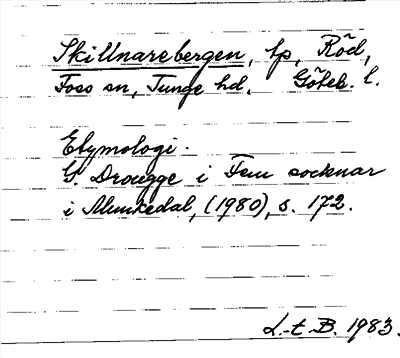 Skillnarebergen, lp, Röd,
Foss sn, Tunge hd. Göteb. l.
Etymologi.
G. Drougge i Fem socknar
i Munkedal, (1980), s. 172.
L-t B. 1983.